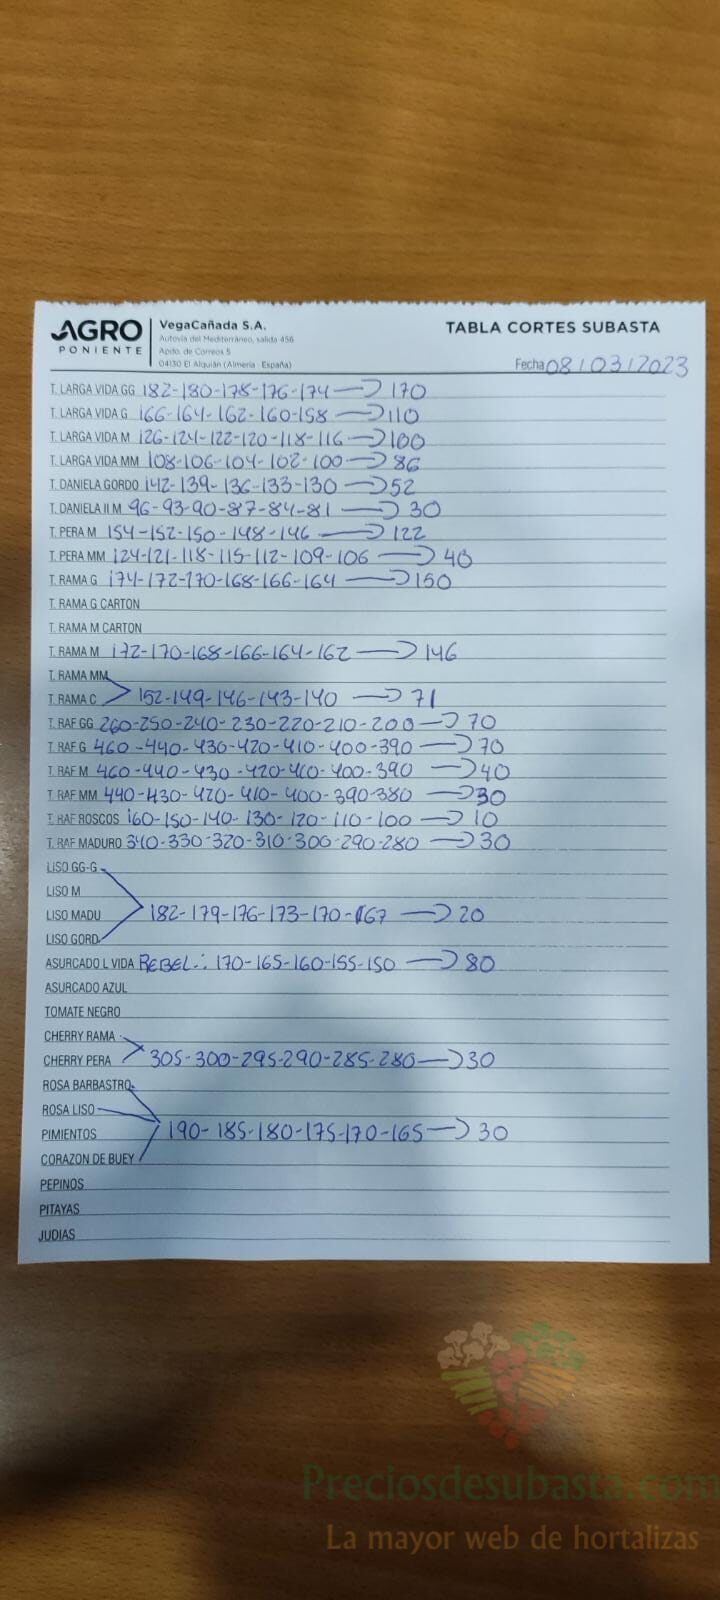 AGRO
PONIENTE
VegaCañada S.A.
Autovía del Mediterráneo, salida 456
Apdo. de Correos 5
04130 El Alquián (Almería · España)
TABLA CORTES SUBASTA
Fecha 08/03/2023
T. LARGA VIDA GG 182-180-178-176-174 → 170
T. LARGA VIDA G 166-164-162-160-158 → 110
T. LARGA VIDA M 126-124-122-120-118-116 → 100
T. LARGA VIDA MM 108-106-104-102-100 → 86
T. DANIELA GORDO 142-139-136-133-130 → 52
T. DANIELA II M 96-93-90-87-84-81 → 30
T. PERA M 154-152-150-148-146 → 122
T. PERA MM 124-121-118-115-112-109-106 → 40
T. RAMA G 174-172-170-168-166-164 → 150
T. RAMA G CARTON
T. RAMA M CARTON
T. RAMA M 172-170-168-166-164-162 → 146
T. RAMA MM
T. RAMA C 152-149-146-143-140 → 71
T. RAF GG 260-250-240-230-220-210-200 → 70
T. RAF G 460-440-430-420-410-400-390 → 70
T. RAF M 460-440-430-420-410-400-390 → 40
T. RAF MM 440-430-420-410-400-390-380 → 30
T. RAF ROSCOS 160-150-140-130-120-110-100 → 10
T. RAF MADURO 340-330-320-310-300-290-280 → 30
LISO GG-G
LISO M
LISO MADU 182-179-176-173-170-167 → 20
LISO GORD
ASURCADO L VIDA REBEL∴ 170-165-160-155-150 → 80
ASURCADO AZUL
TOMATE NEGRO
CHERRY RAMA
CHERRY PERA 305-300-295-290-285-280 → 30
ROSA BARBASTRO
ROSA LISO
PIMIENTOS 190-185-180-175-170-165 → 30
CORAZON DE BUEY
PEPINOS
PITAYAS
JUDIAS
Preciosdesubasta.com
La mayor web de hortalizas